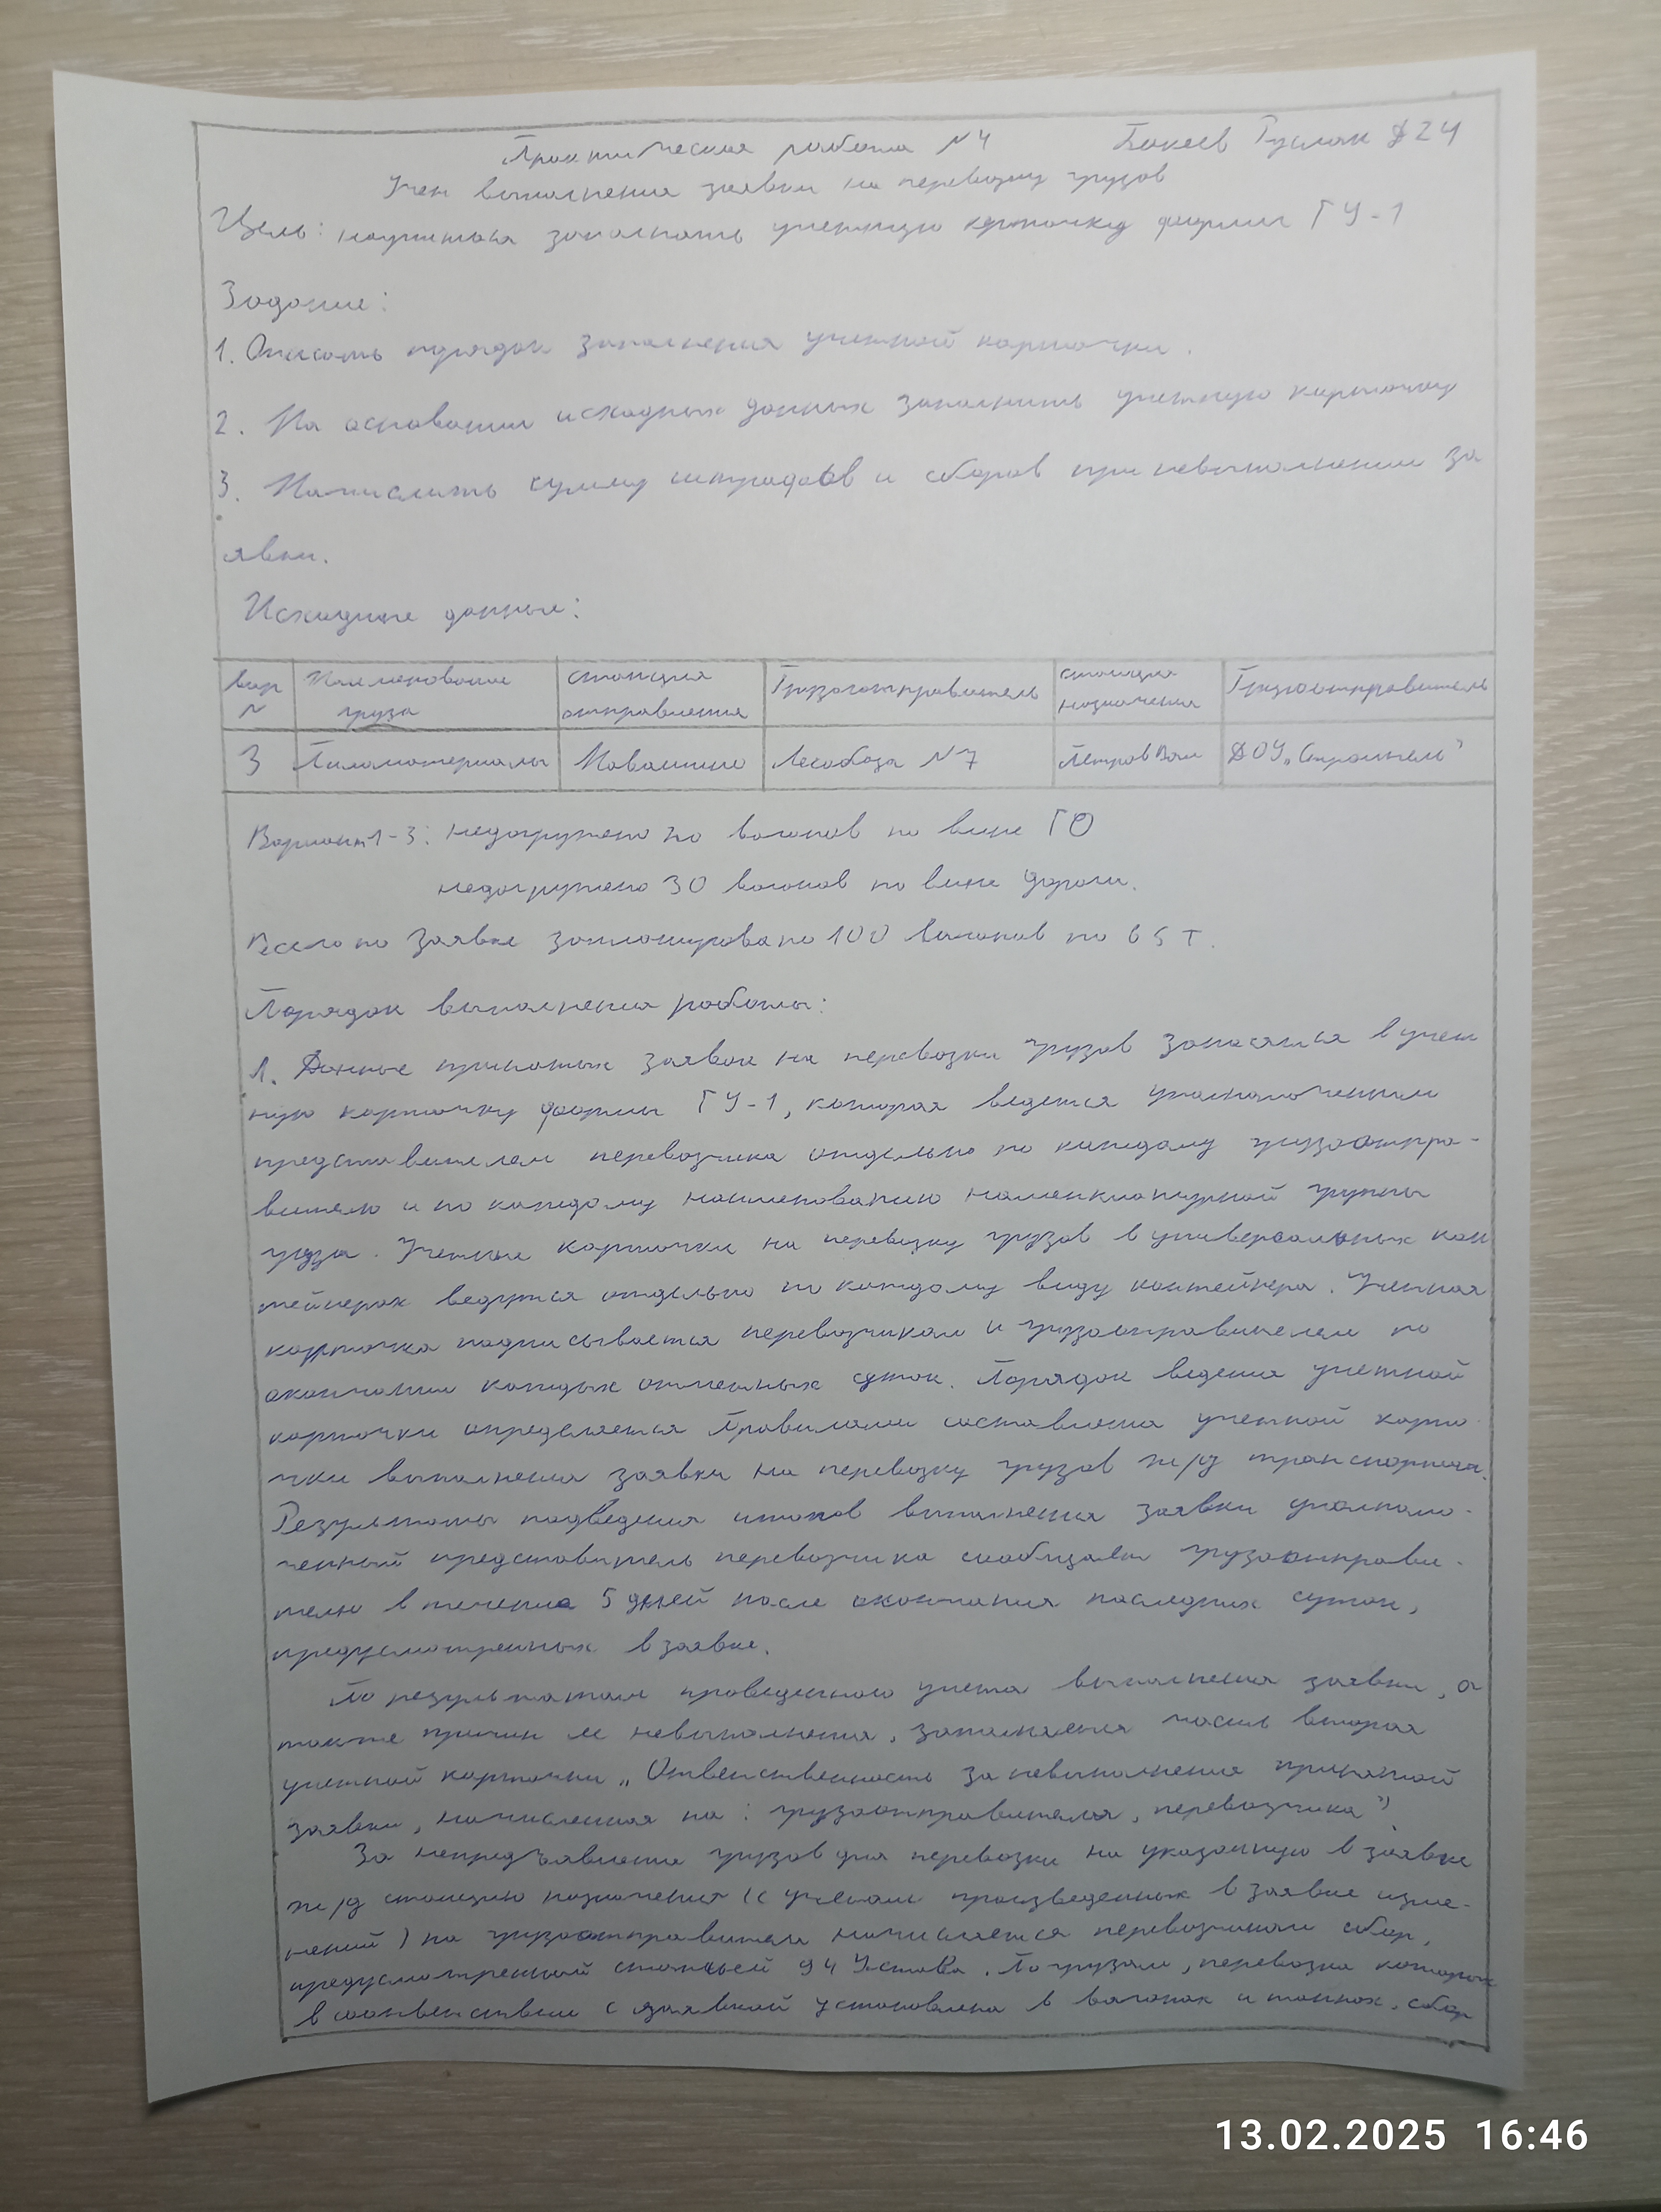 Практическая работа №4 Бакеев Руслан Д24
Учет выполнения заявки на перевозку грузов
Цель: научиться заполнять учетную карточку формы ГУ-1
Задание:
1. Описать порядок заполнения учетной карточки.
2. На основании исходных данных заполнить учетную карточку
3. Начислить сумму штрафов и сборов при невыполнении за
явки.
Исходные данные:
вар № Наименование груза станция отправления Грузоотправитель станция назначения Грузоотправитель
3 Пиломатериалы Навашино Лесобаза №7 Петров Вал ДОУ „Строитель"
Вариант 1-3: недогружено 20 вагонов по вине ГО
недогружено 30 вагонов по вине дороги.
Всего по заявке запланировано 100 вагонов по 65 т.
Порядок выполнения работы:
1. Данные принятых заявок на перевозки грузов заносятся в учет
ную карточку формы ГУ-1, которая ведется уполномоченным
представителем перевозчика отдельно по каждому грузоотпра-
вителю и по каждому наименованию номенклатурной группы
груза. Учетные карточки на перевозку грузов в универсальных кон
тейнерах ведутся отдельно по каждому виду контейнера. Учетная
карточка подписывается перевозчиком и грузоотправителем по
окончании каждых отчетных суток. Порядок ведения учетной
карточки определяется Правилами составления учетной карто-
чки выполнения заявки на перевозку грузов ж/д транспортом.
Результаты подведения итогов выполнения заявки уполномо-
ченный представитель перевозчика сообщает грузоотправи-
телю в течение 5 дней после окончания последних суток,
предусмотренных в заявке.
По результатам проведенного учета выполнения заявки, а
также причин ее невыполнения, заполняется часть вторая
учетной карточки „Ответственность за невыполнение принятой
заявки, начисленная на: грузоотправителя, перевозчика"
За непредъявление грузов для перевозки на указанную в заявке
ж/д станцию назначения (с учетом произведенных в заявке изме-
нений) на грузоотправителя начисляется перевозчиком сбор,
предусмотренный статьей 94 Устава. По грузам, перевозка которых
в соответствии с заявкой установлена в вагонах и тоннах, сбор
13.02.2025 16:46